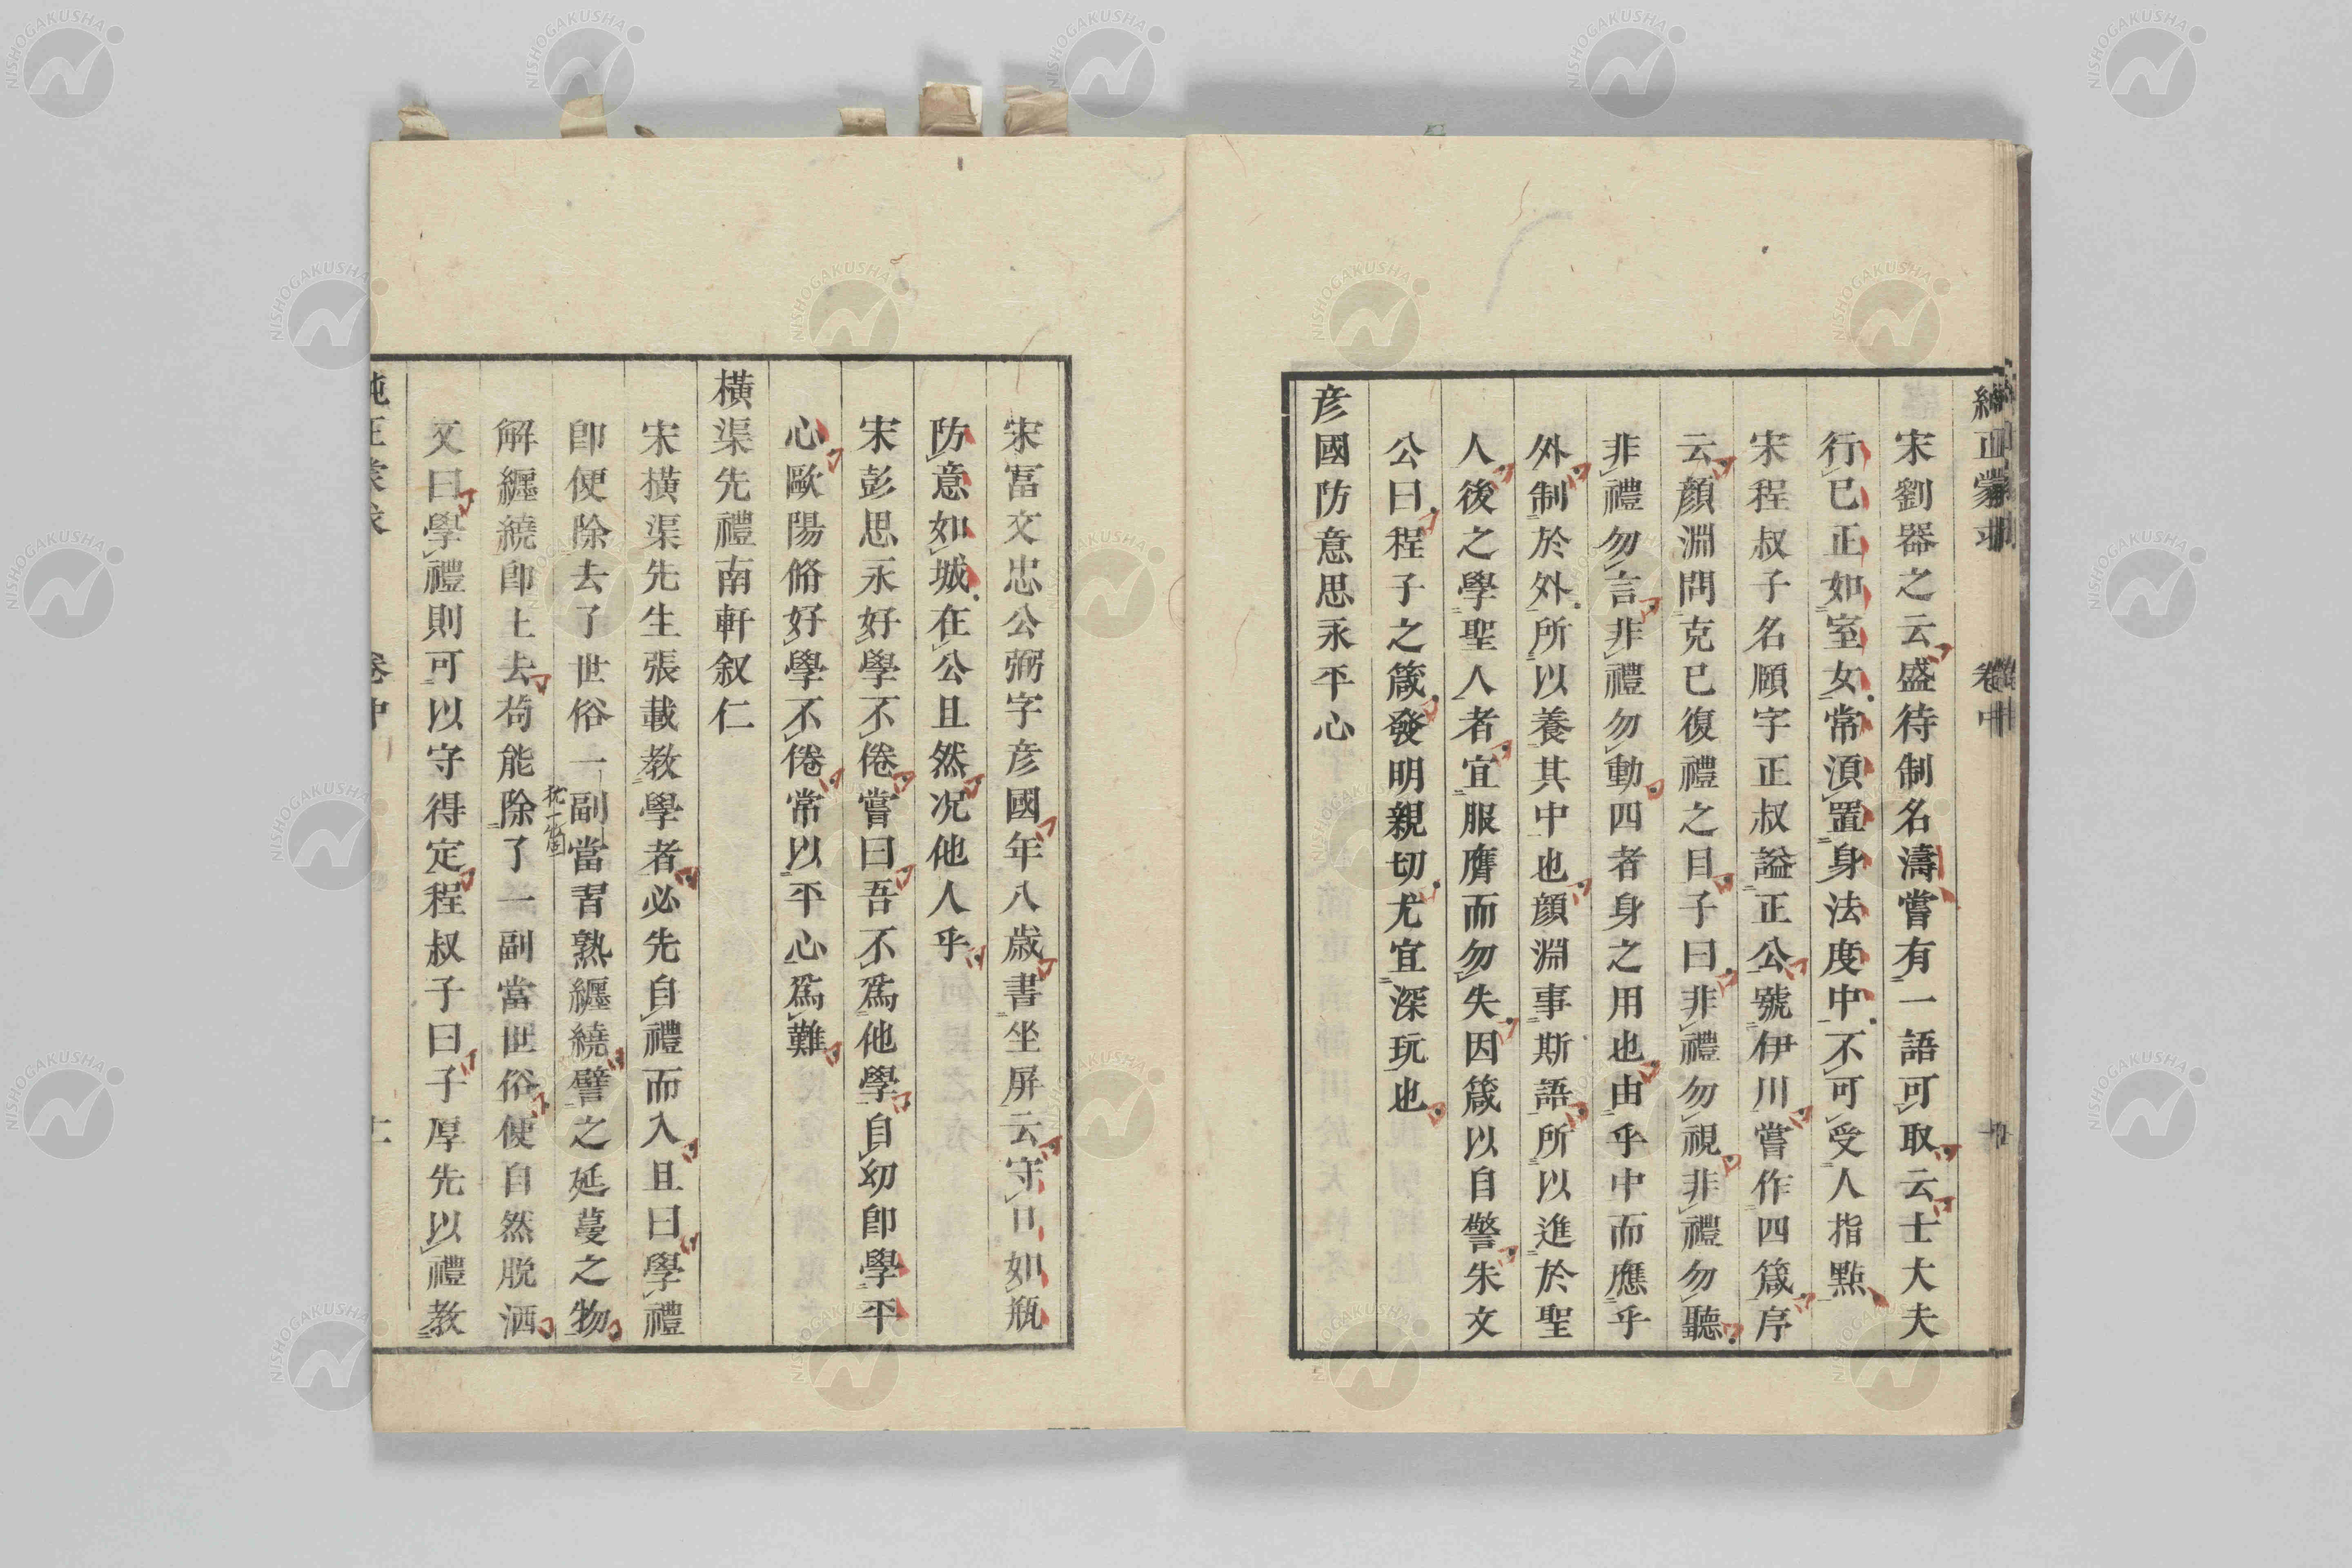 純正蒙求 卷中
宋劉器之云盛待制名濤嘗有一語可取云士大夫
行已正如室女常須置身法度中不可受人指點
宋程叔子名頤字正叔謚正公號伊川嘗作四箴序
云顔淵問克已復禮之目子曰非禮勿視非禮勿聽
非禮勿言非禮勿動四者身之用也由乎中而應乎
外制於外所以養其中也顔淵事斯語所以進於聖
人後之學聖人者宜服膺而勿失因箴以自警朱文
公曰程子之箴發明親切尤宜深玩也
彦國防意思永平心
宋冨文忠公弼字彦國年八歲書坐屏云守口如瓶
防意如城在公且然况他人乎
宋彭思永好學不倦嘗曰吾不爲他學自幼即學平
心歐陽脩好學不倦常以平心爲難
橫渠先禮南軒叙仁
宋橫渠先生張載教學者必先自禮而入且曰學禮
即便除去了世俗一副當習熟纏繞譬之延蔓之物
解纏繞即上去苟能除了一副當世俗便自然脫洒
又曰學禮則可以守得定程叔子曰子厚先以禮教
純正蒙求 卷中
NISHOGAKUSHA